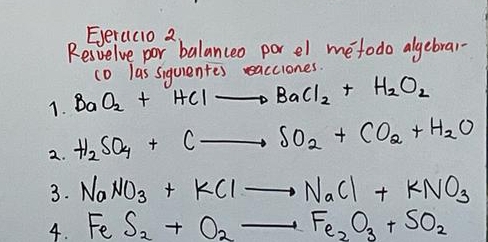 Ejercicio 2
Resuelve por balanceo por el método algebrai-
co las siguientes reacciones.
1. BaO₂ + HCl → BaCl₂ + H₂O₂
2. H₂SO₄ + C → SO₂ + CO₂ + H₂O
3. NaNO₃ + KCl → NaCl + KNO₃
4. FeS₂ + O₂ → Fe₂O₃ + SO₂